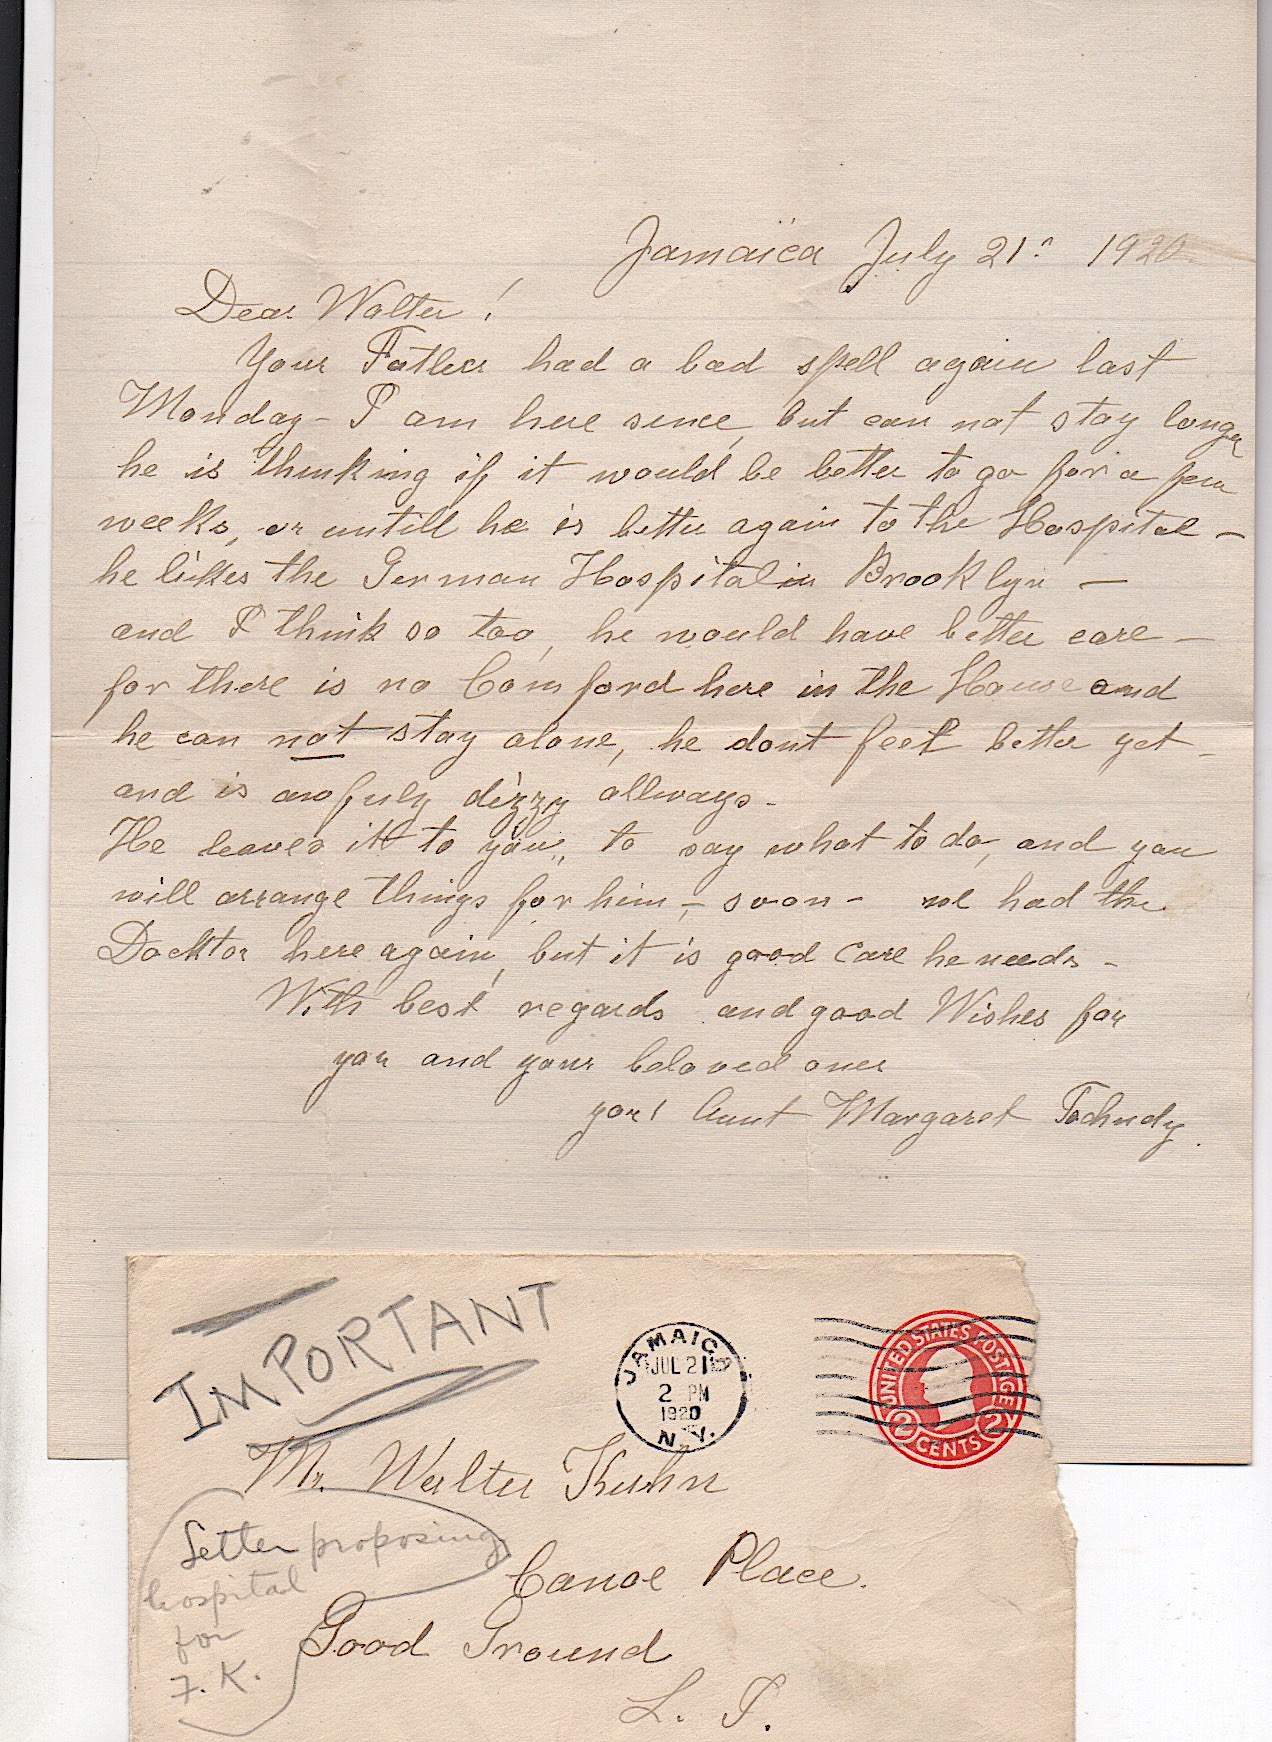 Jamaica July 21. 1920
Dear Walter!
Your Father had a bad spell again last
Monday - I am here since, but can not stay longer
he is thinking if it would be better to go for a few
weeks, or untill he is better again to the Hospital -
he likes the German Hospital in Brooklyn -
and I think so too, he would have better care -
for there is no Comford here in the House and
he can not stay alone, he dont feel better yet -
and is awfuly dizzy allways -
He leaves it to you, to say what to do, and you
will arrange things for him, - soon - we had the
Docktor here again, but it is good care he needs -
With best regards and good Wishes for
you and your beloved ones
your Aunt Margaret Tschudy.
IMPORTANT
JAMAICA
JUL 21
2 PM
1920
N.Y.
UNITED STATES POSTAGE
2 CENTS 2
Mr. Walter Kuhn
Canoe Place.
Good Ground
L. I.
Letter proposing
hospital
for
F. K.